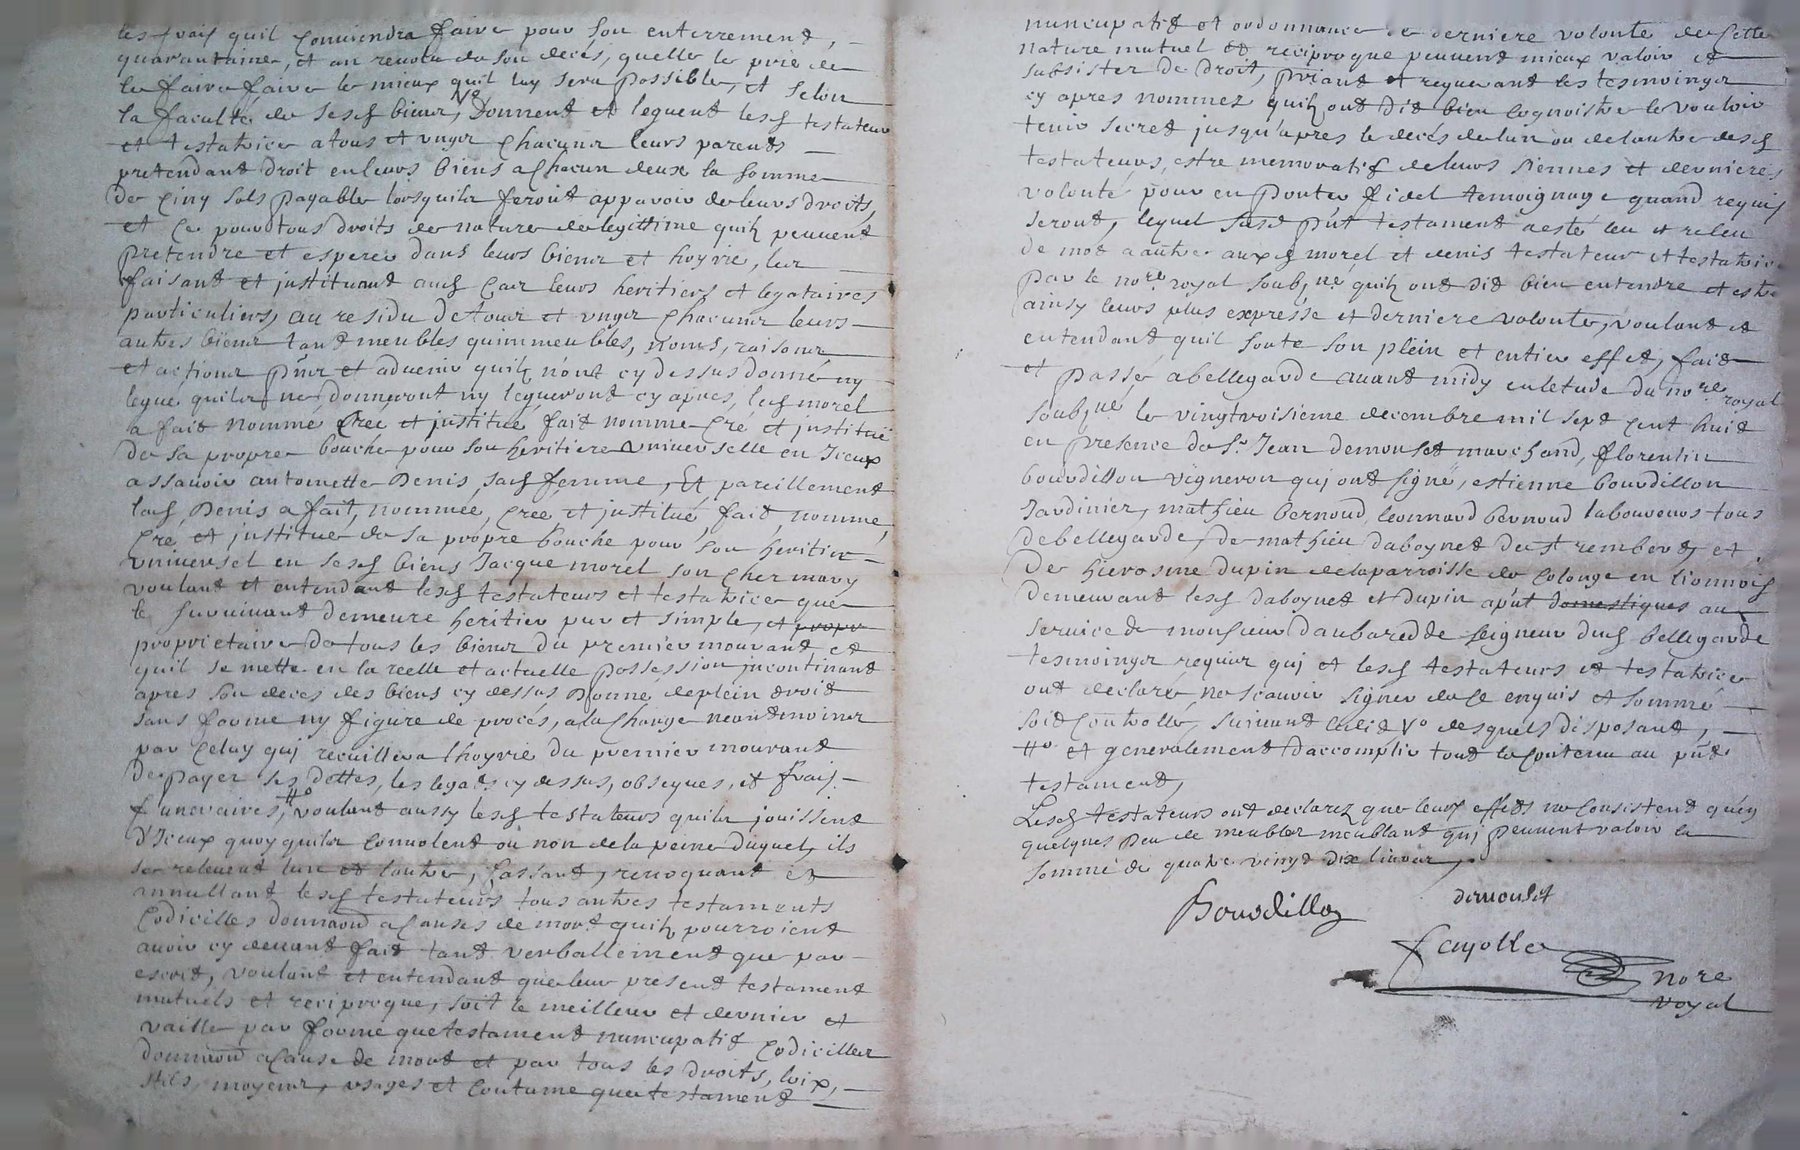 les frais quil Conviendra faire pour son enterrement,
quarantaine, et an revolu de son decés, quelle le prie de
le faire faire le mieux quil luy sera possible, et selon
la faculté de sesd biens, Vo Donnent et leguent lesd testateur
et testatrice a tous et ungs Chacuns leurs parents
pretendant droit en leurs biens a Chacun deux la somme
De Cinq sols payable lorsquils feront apparoir de leurs droits,
et Ce pour tous droits de nature de legittime quilz peuvent
pretendre et esperer dans leurs biens et hoyrie, les
faisant et justituant aud Cas leurs heritiers et legataires
particuliers, au residu De tous et ungs Chacuns leurs
autres biens tant meubles quimmeubles, noms, raisons,
et actions pnts et advenir quilz nont cy dessus donné ny
legué quils ne donneront ny legueront cy apres, led morel
a fait nommé Cree et justitué fait nomme Cré et justitue
De sa propre bouche pour son heritiere universelle en Iceux
assavoir antoinette Denis, sad femme, Et pareillement
lad Denis a fait, nommée, Cree et justitué, fait, nomme,
Cre et justitue de sa propre bouche pour son heritier
universel en sesd biens Jacque morel son Cher mary
voulant et entendant lesd testateurs et testatrice que
le survivant demeure heritier pur et simple, et propr
proprietaire de tous les biens du premier mourant et
quil se mette en la reelle et actuelle possession incontinant
apres son deces des biens cy dessus Donne de plein droit
sans forme ny figure de procés, a la Charge neantmoins
par Celuy qui recuillira lhoyrie du premier mourant
De payer ses dettes, les legats cy dessus, obseques, et frais
funeraires, #o voulant aussy lesd testateurs quils jouissent
d'Iceux quoy quils Convolent ou non de la peine Duquel, ils
se relevent lun et lautre, Cassant, revoquant et
annullant lesd testateurs tous autres testaments
Codicilles donnaōn a Causes de mort quilz pourroient
avoir cy devant fait tant verballement que par
escrit, voulant et entendant que leur present testament
mutuels et reciproque, soit le meilleur et dernier et
vaille par forme que testament nuncupatif Codiciller
donnaōn a Cause de mort et par tous les droits, loix,
stils, moyens, usages et Coutume que testament
nuncupatif et ordonnance de derniere volonte de Cette
nature mutuel et reciproque peuvent mieux valoir et
subsister De Droit, priant et requerant les tesmoings
cy apres nommez quilz ont dit bien Cognoistre le vouloir
tenir secret jusqu'apres le decés de lun ou de lautre desd
testateurs, estre memoratif de leurs siennes et dernieres
volonté pour en porter fidel temoignage quand requis
seront, lequel susd pnt testament a esté leu et releu
de mot a autre auxd morel et denis testateur et testatrice
par le nore royal soubzne quilz ont dit bien entendre et estre
ainsy leurs plus expresse et derniere volonté, voulant et
entendant quil sorte son plein et entier effet, fait
et passé a bellegarde avant midy en letude du nore royal
soubzne le vingtroisieme decembre mil sept Cent huit
en presence de Sr Jean demoulet marchand, florentin
bourdillon vigneron qui ont signé, estienne bourdillon
Jardinier, mathieu bernoud, leonnard bernoud laboureurs tous
de bellegarde, de mathieu daboynet de St rembert, et
De hierosme dupin de la parroisse de Colonge en lionnois
demeurant lesd daboynet et dupin a pnt domestiques au
service de monsieur Daubarede seigneur dud bellegarde
tesmoings requis qui et lesd testateurs et testatrice
ont declaré ne scavoir signer de Ce enquis et sommé
soit Controllé, suivant ledit Vo desquels disposant,
#o et generalement daccomplir tout le Contenu au pnt
testament,
Lesd testateurs ont declarez que leurs effets ne Consistent qu'en
quelques peu de meubles meublant qui peuvent valoir la
somme de quatre vingt dix livres,
Bourdillon
demoulet
fayolle
nore
royal